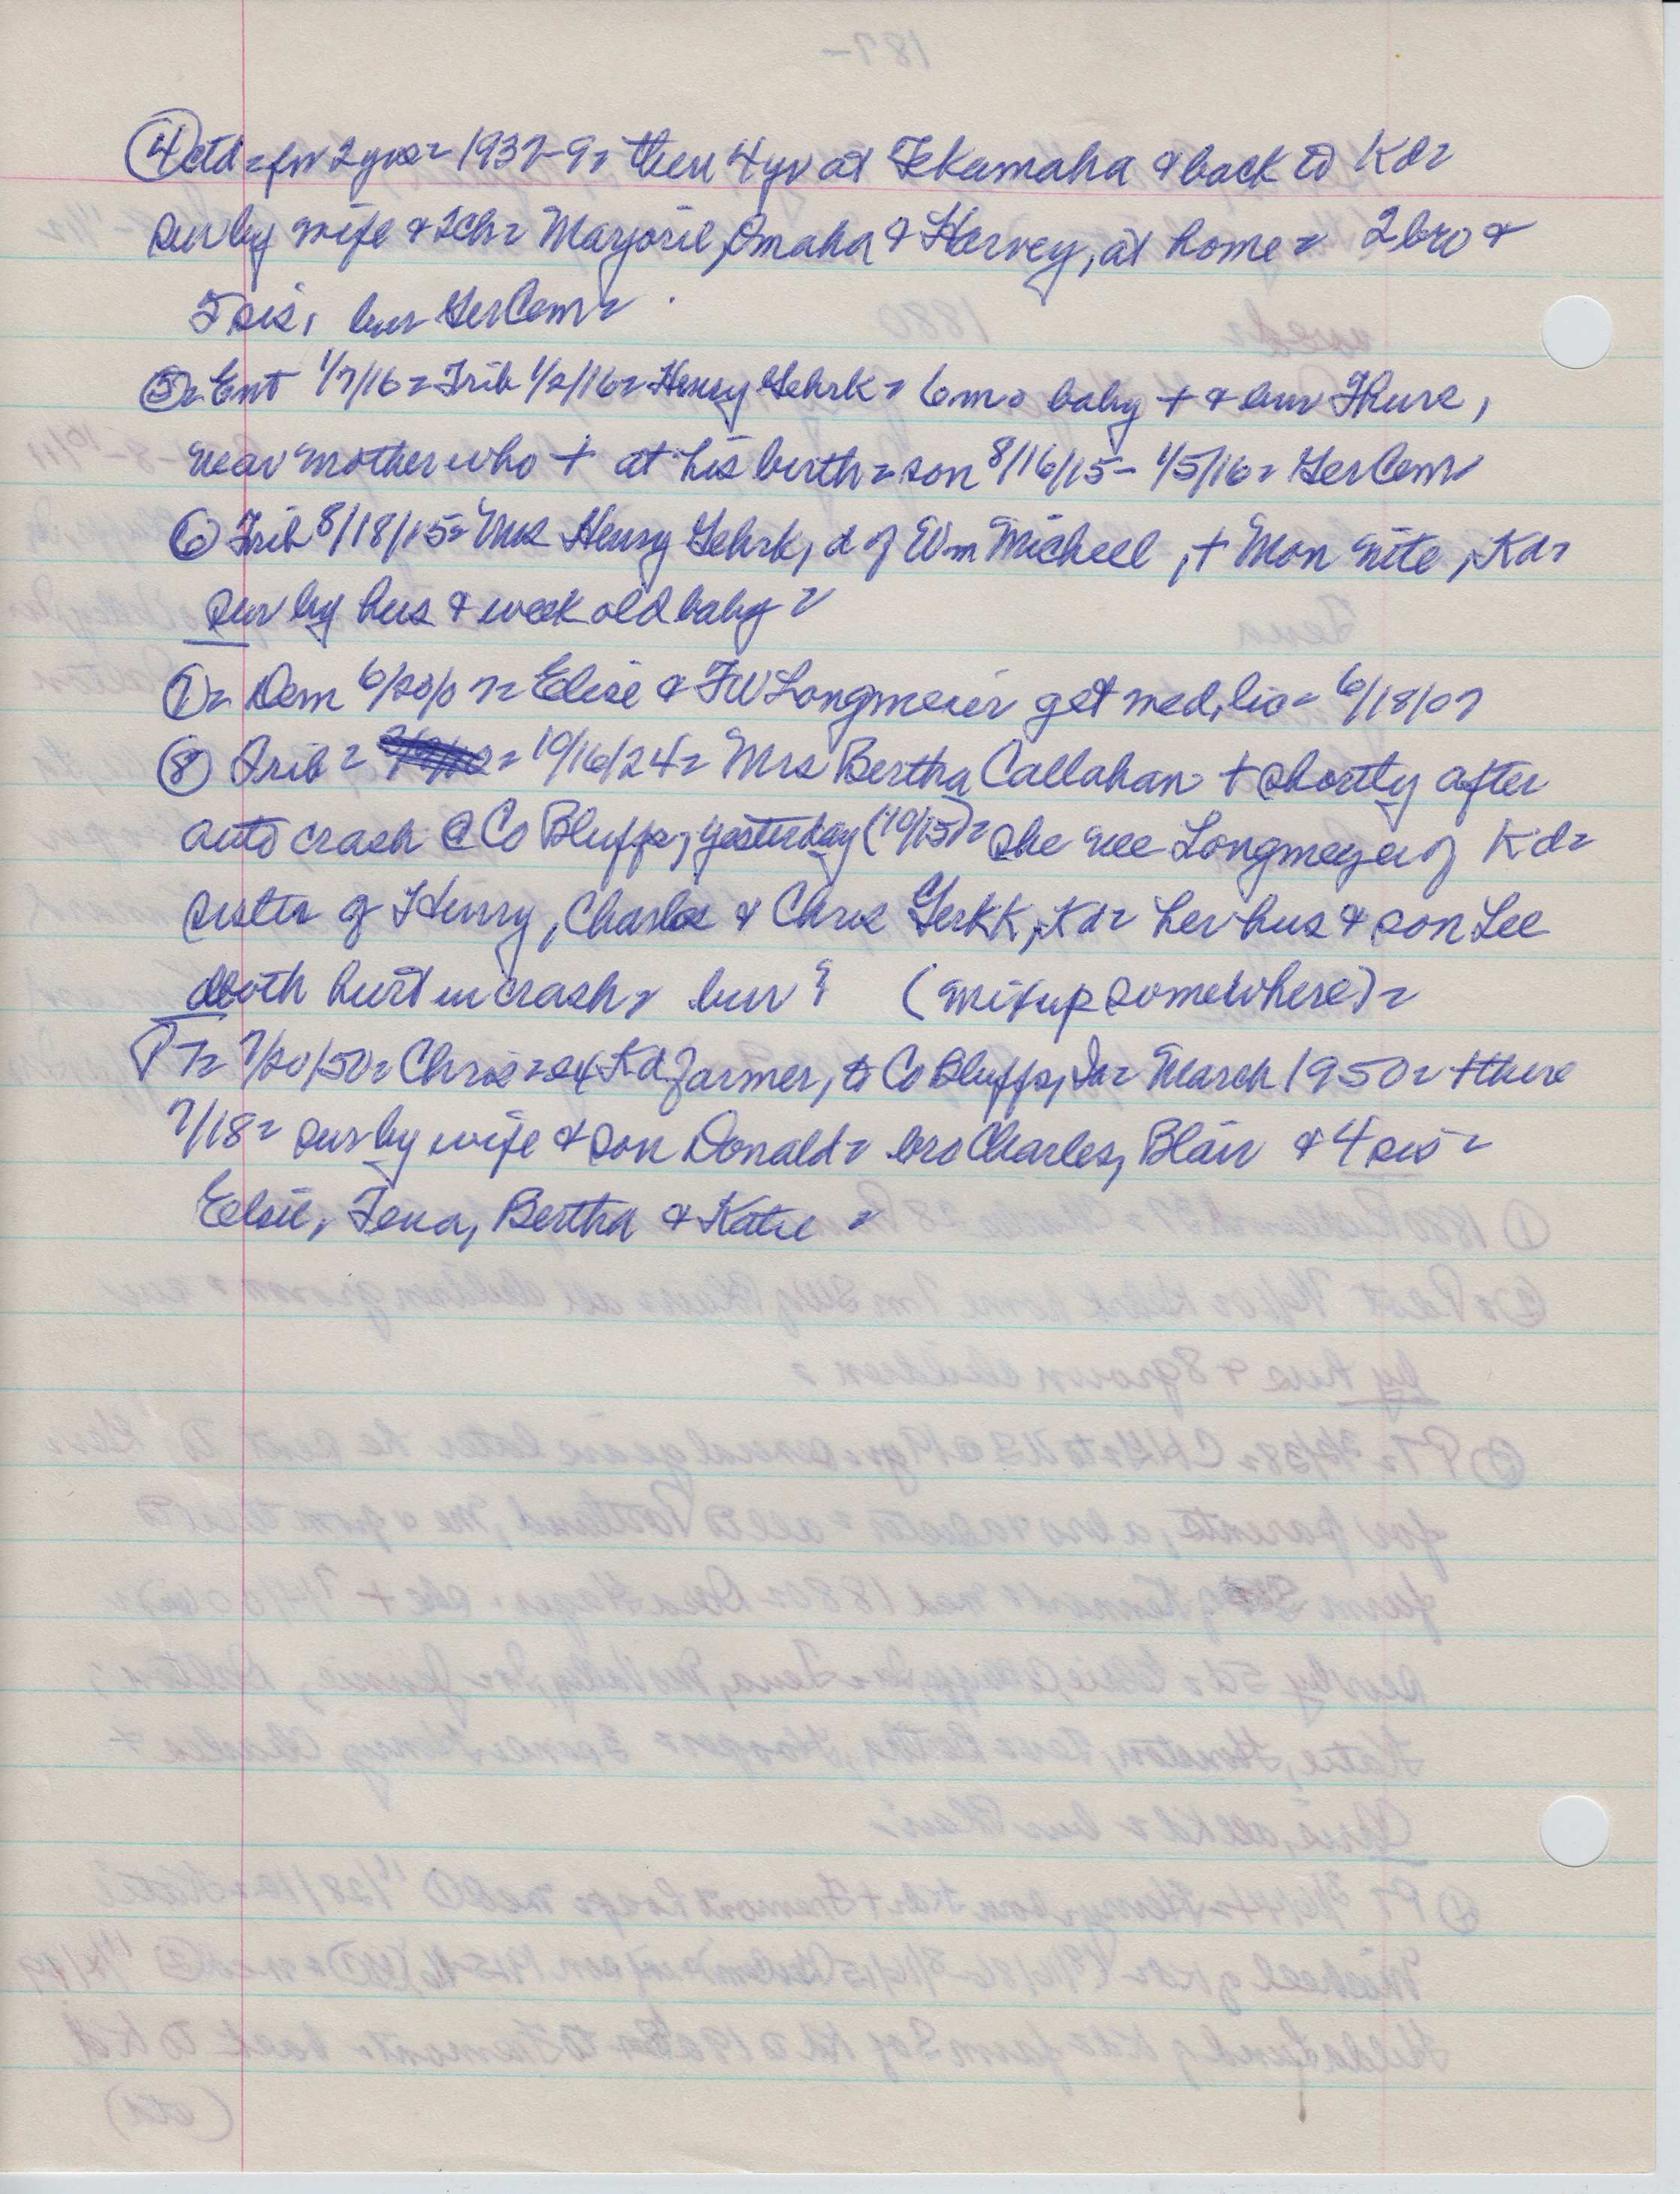 ④ ctd = for 2 yrs = 1937-9 = then 4 yr at Tekamaha & back to Kd =
sur by wife & 2ch = Marjorie, Omaha & Harvey, at home = 2 bro &
5 sis, bur Ger Cem =
⑤ = Ent 1/7/16 = Trib 1/2/16 = Henry Gehrk = 6 mo baby + & bur Thurs,
near mother who + at his birth = son 8/16/15 - 1/5/16 = Ger Cem =
⑥ Trib 8/18/15 = Mrs Henry Gehrk, d of Wm Micheel, + Mon nite, Kd =
sur by hus & week old baby =
⑦ = Dem 6/20/07 = Elise & FW Longmeier get med, lic = 6/18/07
⑧ Trib = = 10/16/24 = Mrs Bertha Callahan + shortly after
auto crash @ Co Bluffs, yesterday (10/15) = she nee Longmeyer of Kd =
sister of Henry, Charles & Chris Gerkk, Kd = her hus & son Lee
both hurt in crash = bur ? (mixup somewhere) =
PT = 7/20/50 = Chris = ex Kd farmer, to Co Bluffs, Ia = March 1950 = + there
7/18 = sur by wife & son Donald = bro Charles, Blair & 4 sis =
Elsie, Tena, Bertha & Katie =